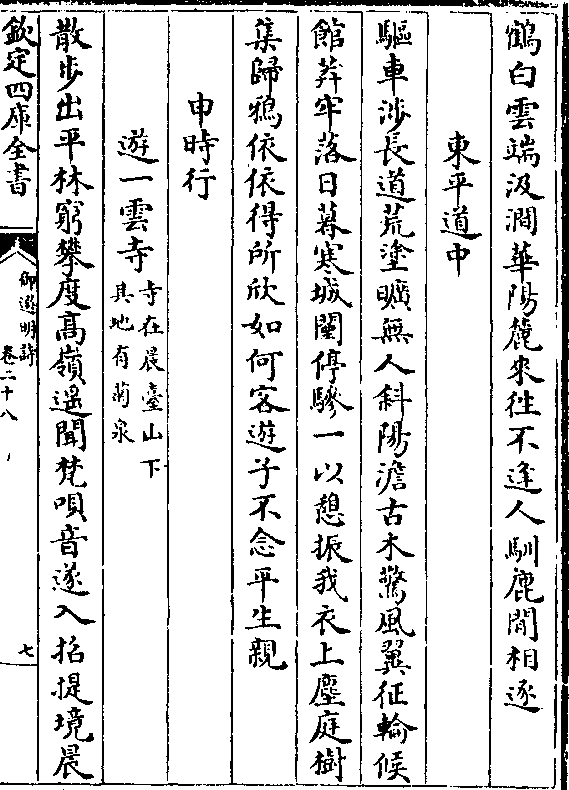 鶴白雲端汲澗華陽麓來往不逢人馴鹿閒相逐
東平道中
驅車涉長道荒塗曠無人斜陽澹古木驚風翼征輪候
館莽牢落日暮寒城闉停驂一以憩振我衣上塵庭樹
集歸鴉依依得所欣如何客遊子不念平生親
申時行
遊一雲寺
寺在晨臺山下
其地有菊泉
散步出平林窮攀度高嶺遥聞梵唄音遂入招提境晨
欽定四庫全書
御選明詩
卷二十八
七